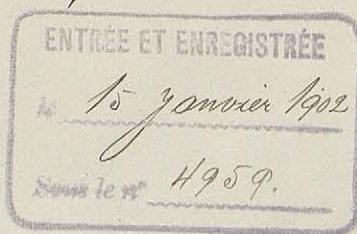 ENTRÉE ET ENREGISTRÉE
le 15 Janvier 1902
Sous le nº 4959.